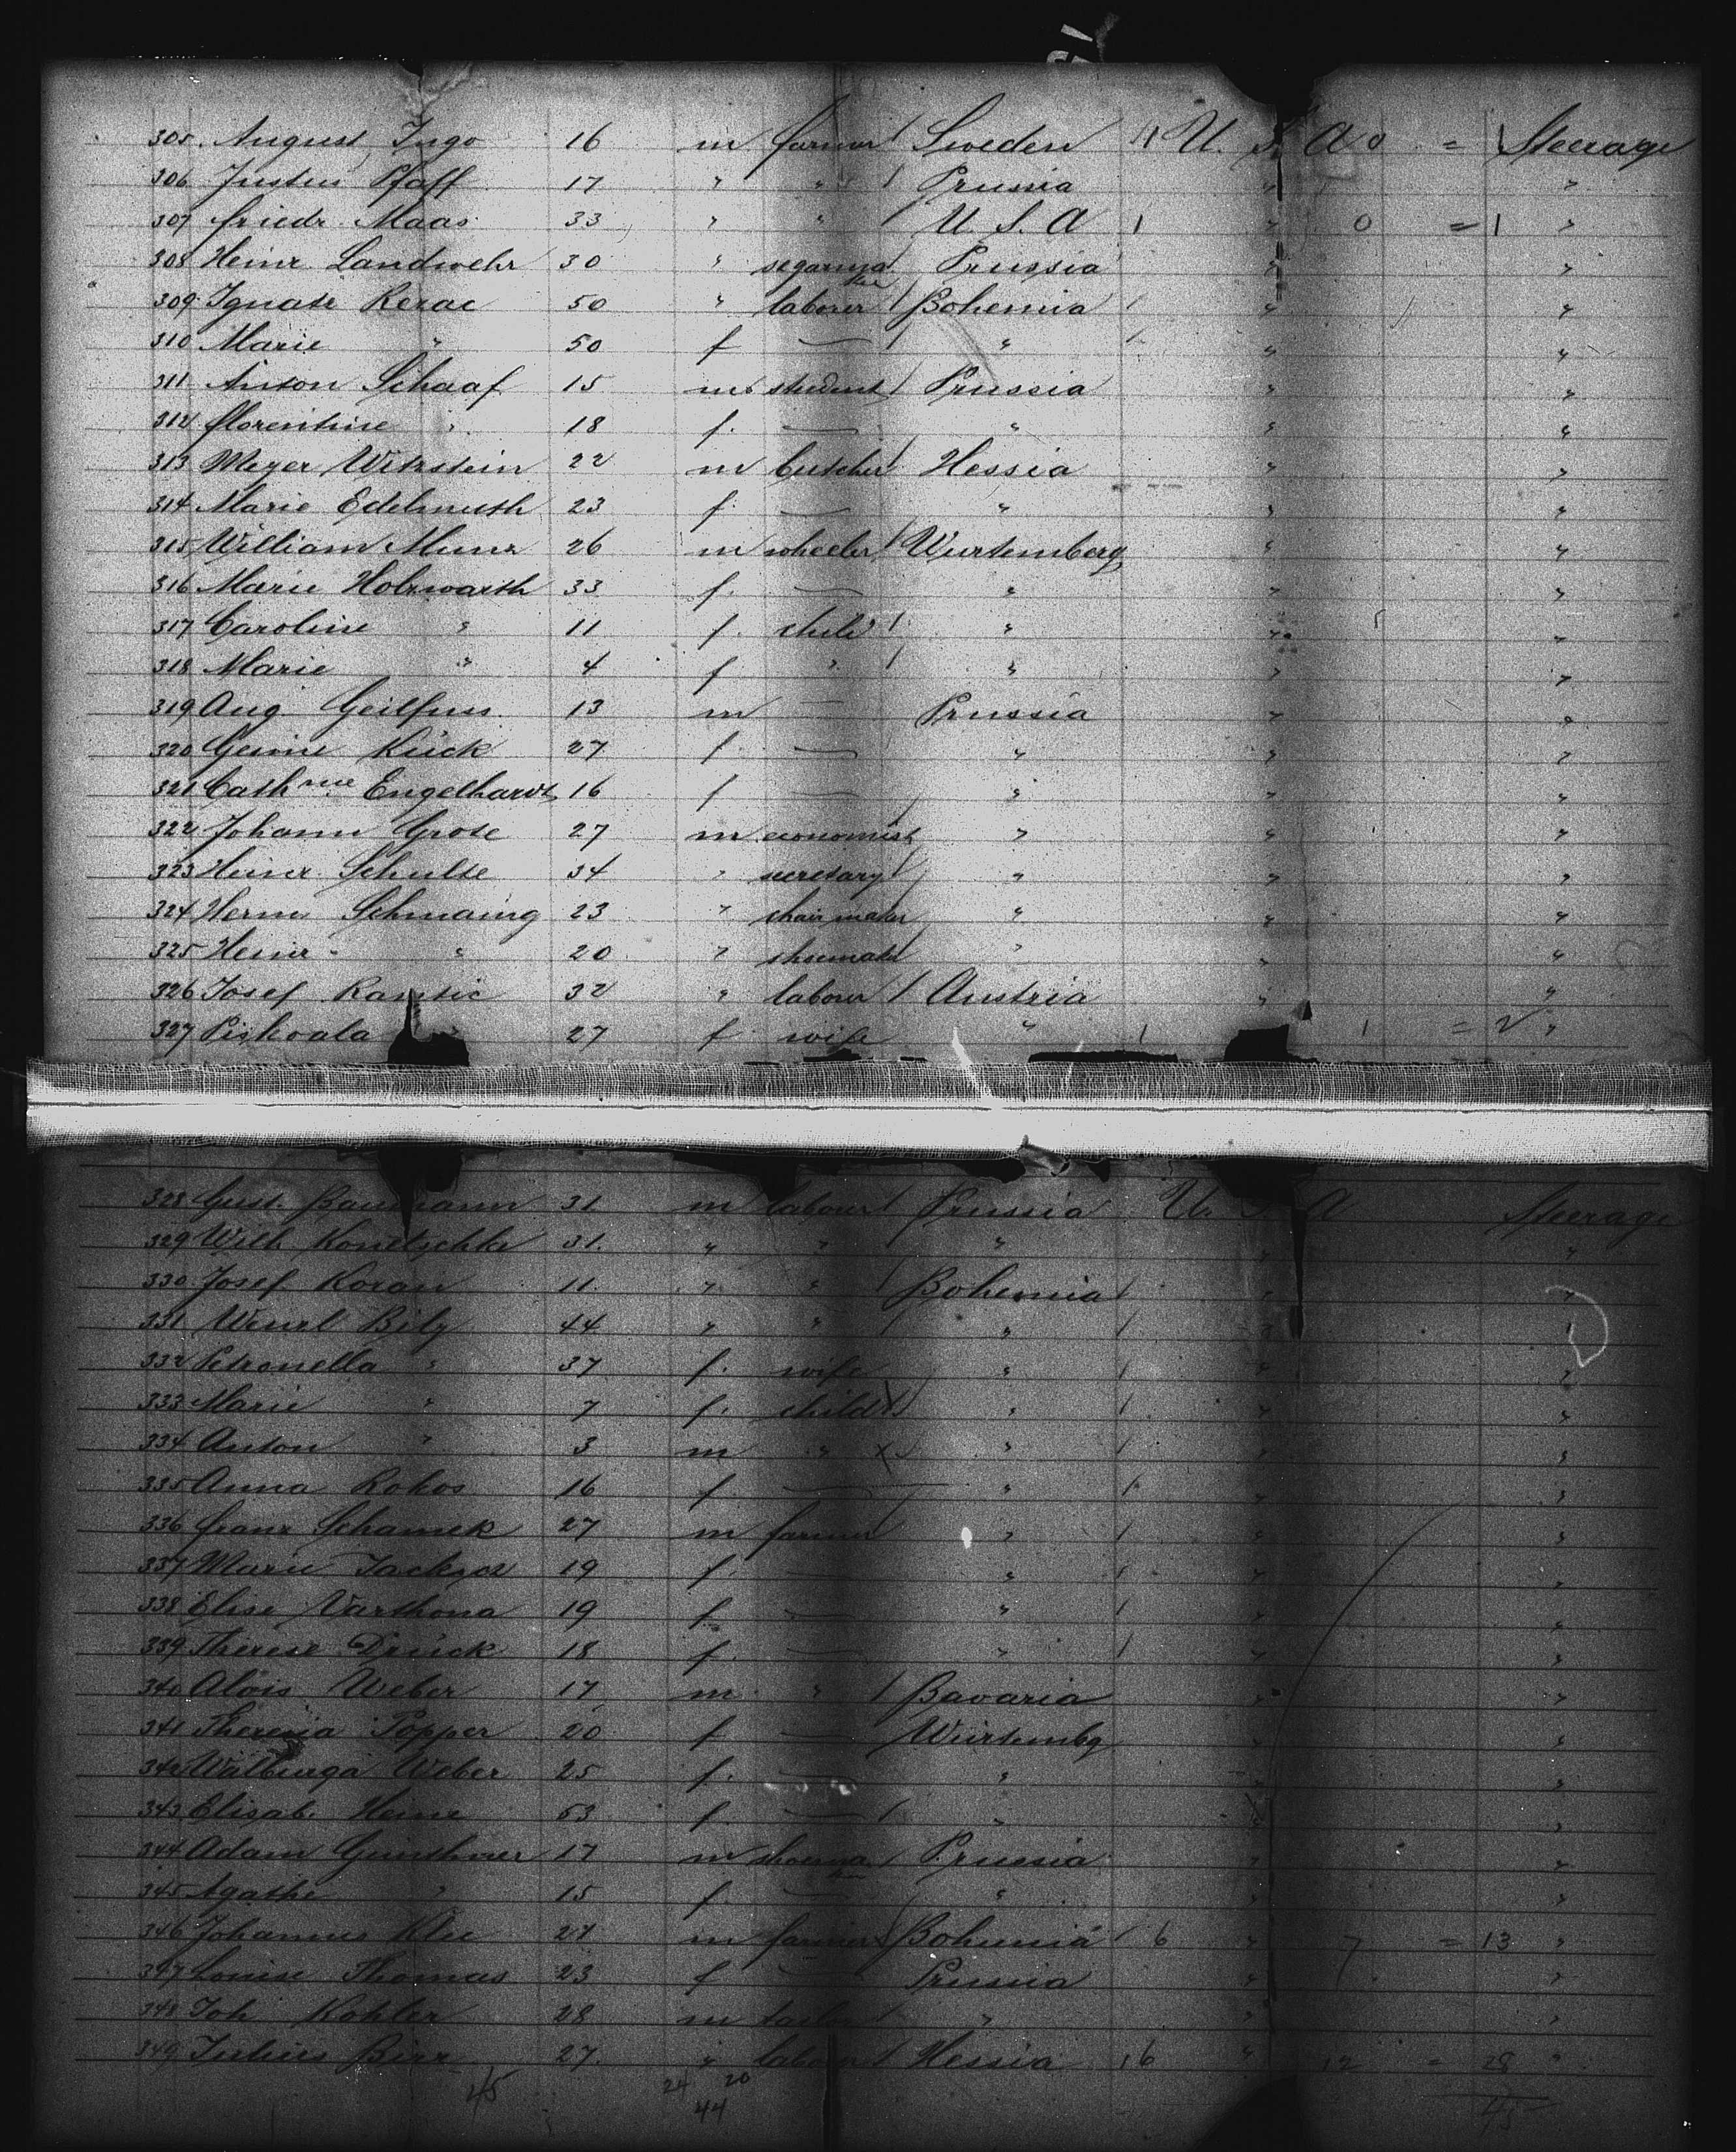 305. August Ingo 16 m farmer / Sweden 1 U. S. A 0 = 1 Steerage
306 Justus Pfaff 17 " " / Prussia " "
307 Friedr. Maas 33 " " / U. S. A 1 " 0 = 1 "
308 Heinr. Landwehr 30 " segarma ker Prussia " "
309 Ignatz Rezac 50 " laborer / Bohemia / " "
310 Marie " 50 f — " / " "
311 Anton Schaaf 15 m student / Prussia " "
312 Florentine " 18 f. — " " "
313 Meyer Witzstein 22 m butcher / Hessia " "
314 Marie Edelmuth 23 f. — " " "
315 William Munz 26 m wheeler / Wurtemberg " "
316 Marie Holzwarth 33 f. — " " "
317 Caroline " 11 f. child / " " "
318 Marie " 4 f " / " " "
319 Aug. Geilfuss 13 m — Prussia " "
320 Gesine Kück 27 f. — " " "
321 Cathrine Engelhardt 16 f — " " "
322 Johann Grote 27 m economist " " "
323 Heinr. Schulte 34 " secretary / " " "
324 Herm Schmaing 23 " chairmaker " " "
325 Heinr. " 20 " shoemaker " " "
326 Josef 32 " laborer / Austria " "
327 27 f wife " 1 1 = 2 "
328 Gust. Baumann 31 m laborer / Prussia U. S. A Steerage
329 Wilh Konetschke 31. " " " " "
330 Josef Koran 11. " " / Bohemia / " "
331 Wenzl Bily 44 " " / " / " "
332 Petronella " 37 f. wife " / " "
333 Marie " 7 f. child X " / " "
334 Anton " 3 m " X " / " "
335 Anna Rokos 16 f — " / " "
336 Franz Schamek 27 m farmer / " / " "
337 Marie 19 f. — " / " "
338 Elise Varthona 19 f. — " / " "
339 Therese Drück 18 f. — " / " "
340 Alois Weber 17 m " / Bavaria " "
341 Theresia Popper 20 f — Würtembg " "
342 Walburga Weber 25 f. — " " "
343 Elisab. Heine 53 f. — / " " "
344 Adam Günthner 17 m shoema ker / Prussia " "
345 Agathe " 15 f. — " " "
346 Johannes Klee 27 m farmer Bohemia / 6 " 7 = 13 "
347 Louise Thomas 23 f — Prussia " "
348 Joh Kohler 28 m tailor / " " "
349 Julius 27. " laborer / Hessia 16 " 12 = 28 "
45 24 20 45
44